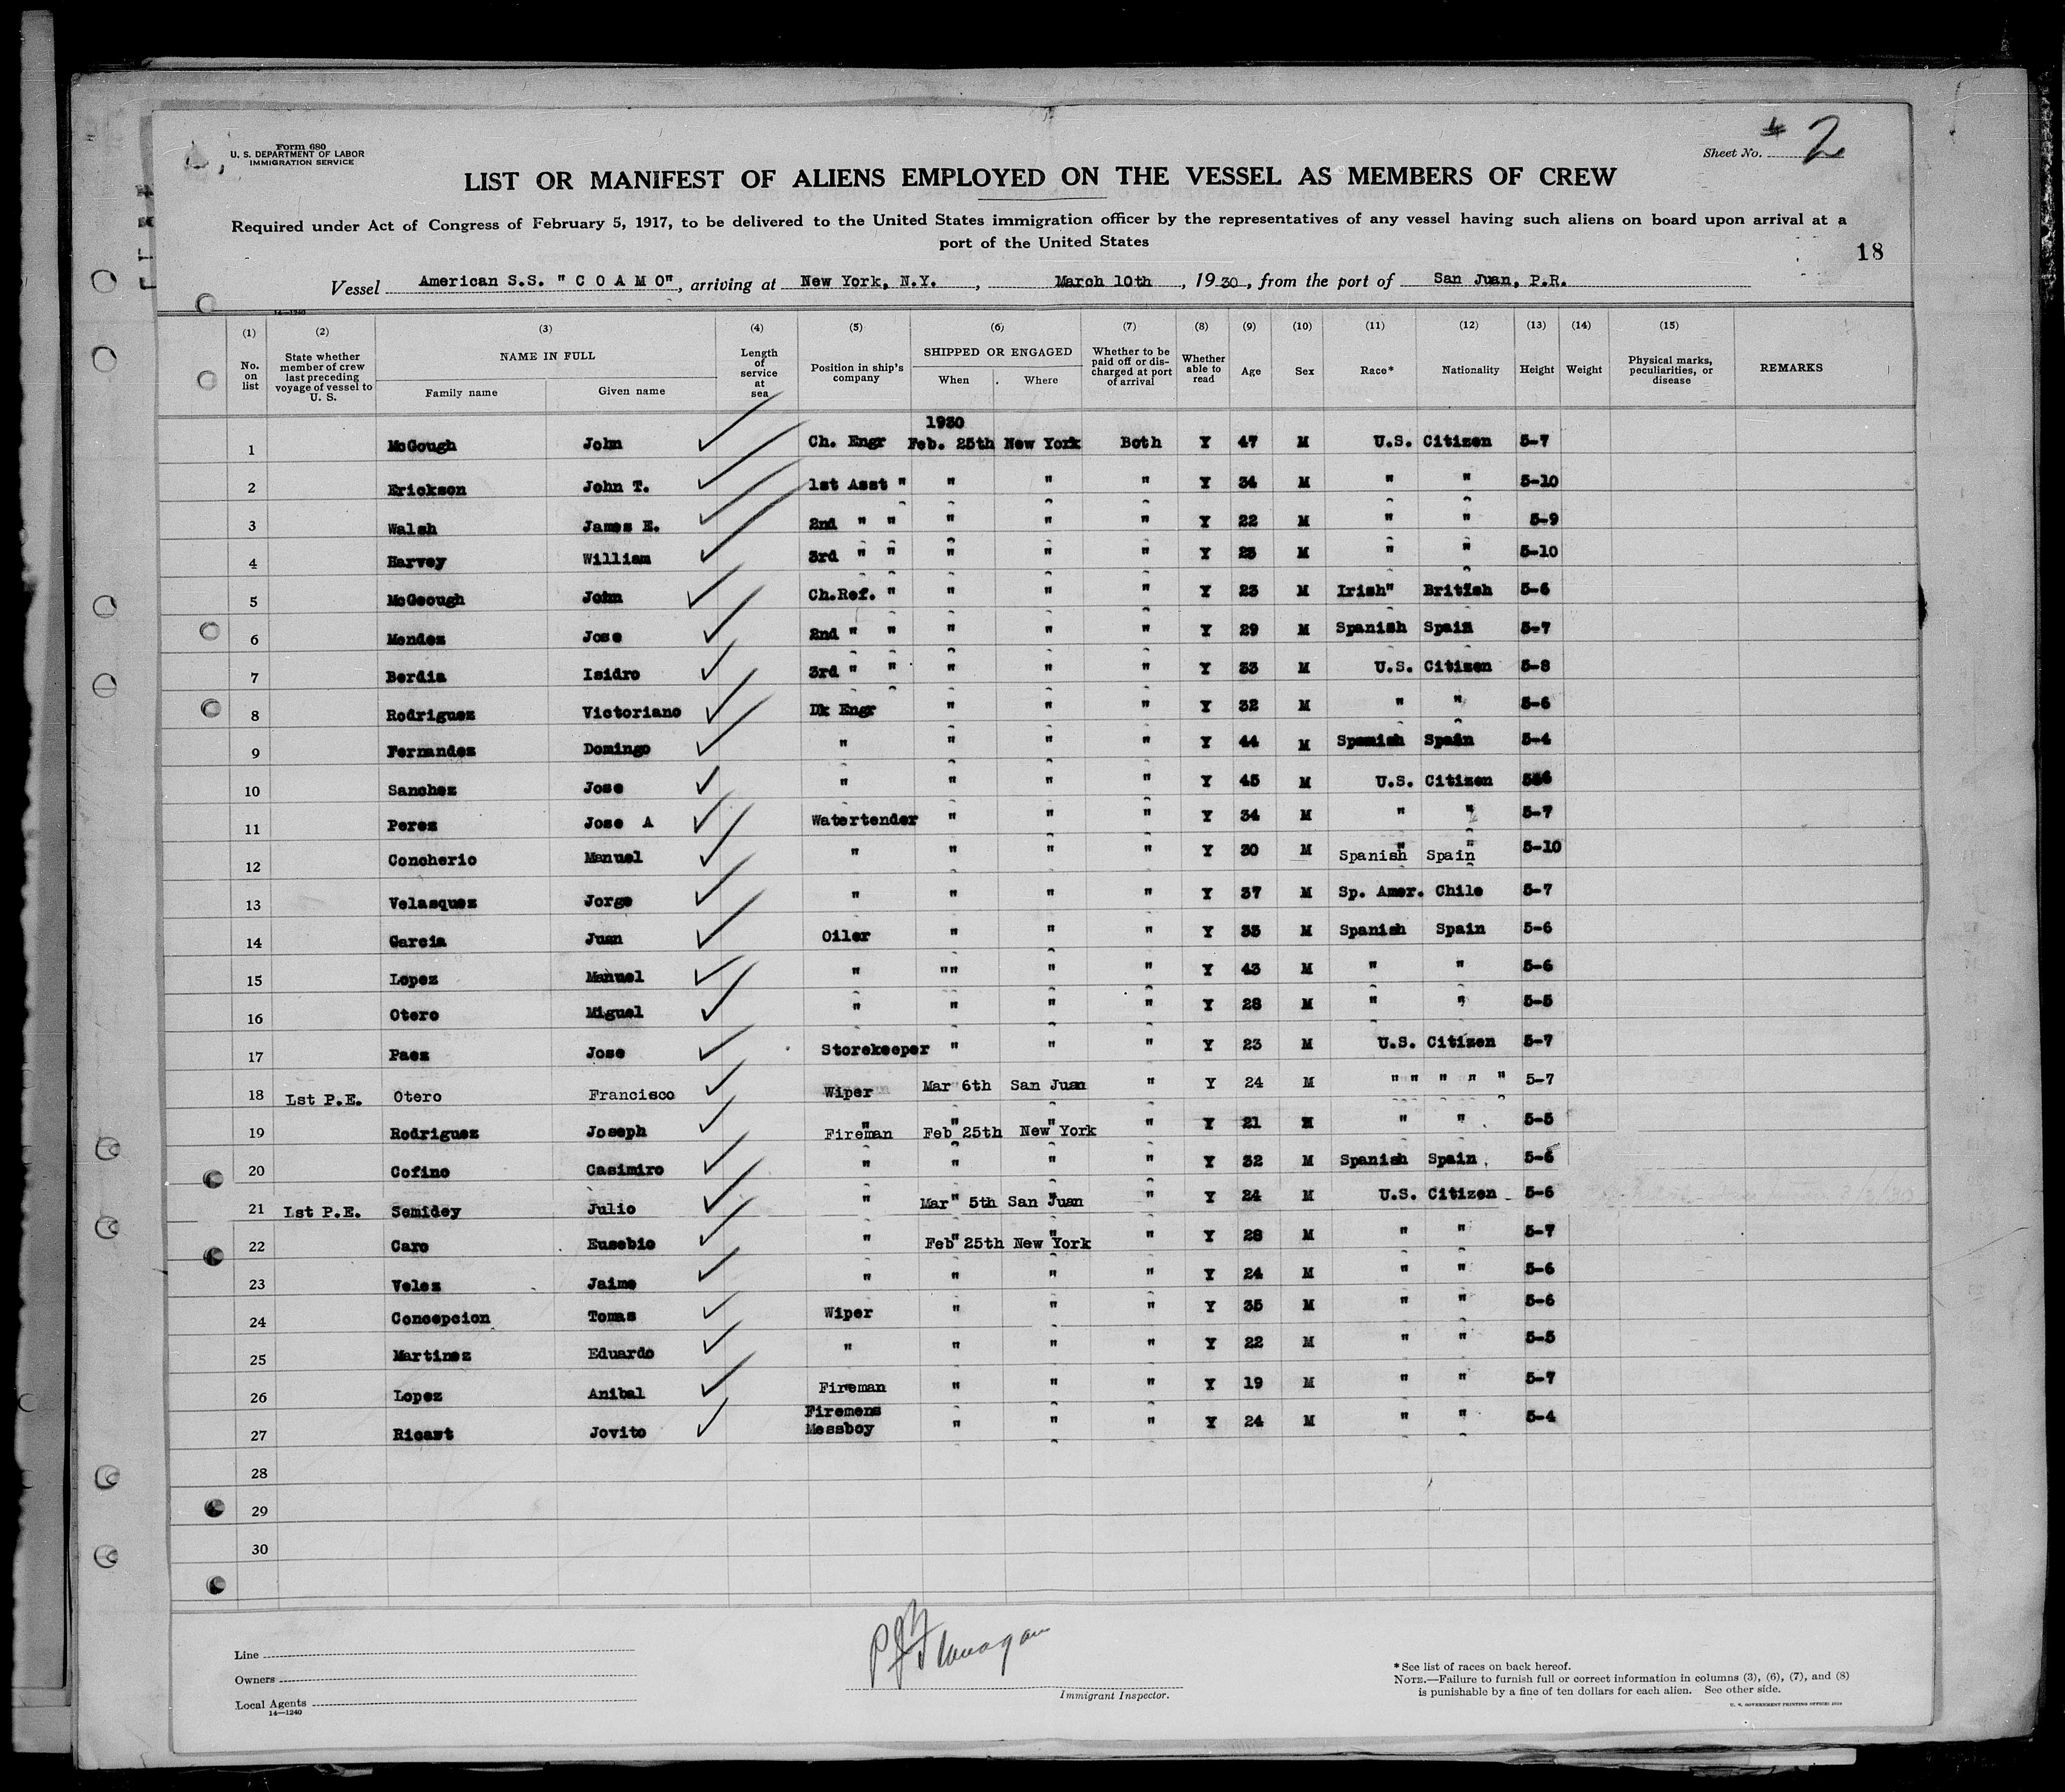 Form 680
U. S. DEPARTMENT OF LABOR
IMMIGRATION SERVICE
Sheet No. # 2
LIST OR MANIFEST OF ALIENS EMPLOYED ON THE VESSEL AS MEMBERS OF CREW
Required under Act of Congress of February 5, 1917, to be delivered to the United States immigration officer by the representatives of any vessel having such aliens on board upon arrival at a
port of the United States
18
Vessel American S.S. " C O A M O", arriving at New York, N.Y., March 10th, 1930, from the port of San Juan, P.R.
14—1240
(1) (2) (3) (4) (5) (6) (7) (8) (9) (10) (11) (12) (13) (14) (15)
No. on list State whether member of crew last preceding voyage of vessel to U. S. NAME IN FULL Family name Given name Length of service at sea Position in ship's company SHIPPED OR ENGAGED When Where Whether to be paid off or discharged at port of arrival Whether able to read Age Sex Race* Nationality Height Weight Physical marks, peculiarities, or disease REMARKS
1930
1 McGough John Ch. Engr Feb. 25th New York Both Y 47 M U.S. Citizen 5-7
2 Erickson John T. 1st Asst " " " " Y 34 M " " 5-10
3 Walsh James E. 2nd " " " " " Y 22 M " " 5-9
4 Harvey William 3rd " " " " " Y 23 M " " 5-10
5 McGeough John Ch.Ref. " " " " Y 23 M Irish" British 5-6
6 Mendez Jose 2nd " " " " " Y 29 M Spanish Spain 5-7
7 Berdia Isidro 3rd " " " " " Y 33 M U.S. Citizen 5-8
8 Rodriguez Victoriano Dk Engr " " " Y 32 M " " 5-6
9 Fernandez Domingo " " " " Y 44 M Spanish Spain 5-4
10 Sanchez Jose " " " " Y 45 M U.S. Citizen
11 Perez Jose A Watertender " " " Y 34 M " " 5-7
12 Concherio Manuel " " " " Y 30 M Spanish Spain 5-10
13 Velasquez Jorge " " " " Y 37 M Sp. Amer. Chile 5-7
14 Garcia Juan Oiler " " " Y 35 M Spanish Spain 5-6
15 Lopez Manuel " "" " " Y 43 M " " 5-6
16 Otero Miguel " " " " Y 28 M " " 5-5
17 Paez Jose Storekeeper " " " Y 23 M U.S. Citizen 5-7
18 Lst P.E. Otero Francisco Wiper Mar 6th San Juan " Y 24 M " " " " " 5-7
19 Rodriguez Joseph Fireman Feb 25th New York " Y 21 M " " 5-5
20 Cofino Casimiro " " " " Y 32 M Spanish Spain 5-6
21 Lst P.E. Semidey Julio " Mar 5th San Juan " Y 24 M U.S. Citizen 5-6
22 Caro Eusebio " Feb 25th New York " Y 28 M " " 5-7
23 Velez Jaime " " " " Y 24 M " " 5-6
24 Concepcion Tomas Wiper " " " Y 35 M " " 5-6
25 Martinez Eduardo " " " " Y 22 M " " 5-5
26 Lopez Anibal Fireman " " " Y 19 M " " 5-7
27 Ricart Jovito Firemens Messboy " " " Y 24 M " " 5-4
28
29
30
Line
Owners
Local Agents
14—1240
P J Flanagan
Immigrant Inspector.
* See list of races on back hereof.
NOTE.—Failure to furnish full or correct information in columns (3), (6), (7), and (8)
is punishable by a fine of ten dollars for each alien. See other side.